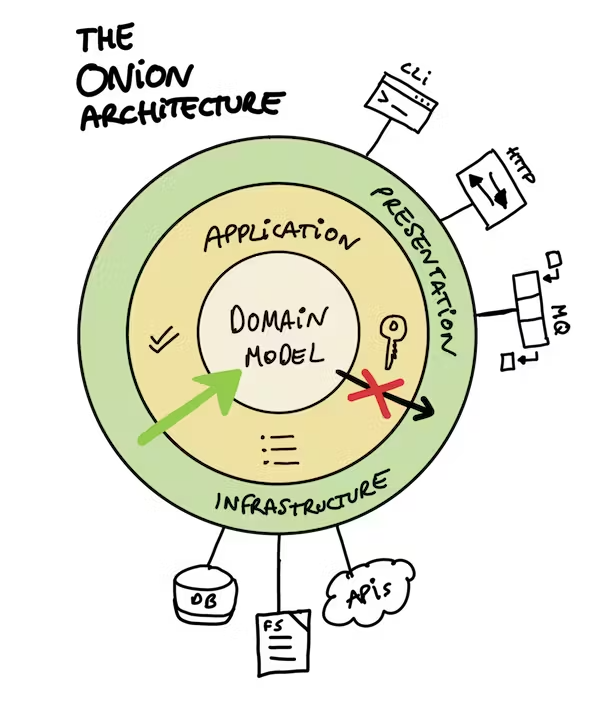 THE
ONION
ARCHITECTURE
CLI
HTTP
PRESENTATION
MQ
APPLICATION
DOMAIN
MODEL
INFRASTRUCTURE
DB
FS
APIS